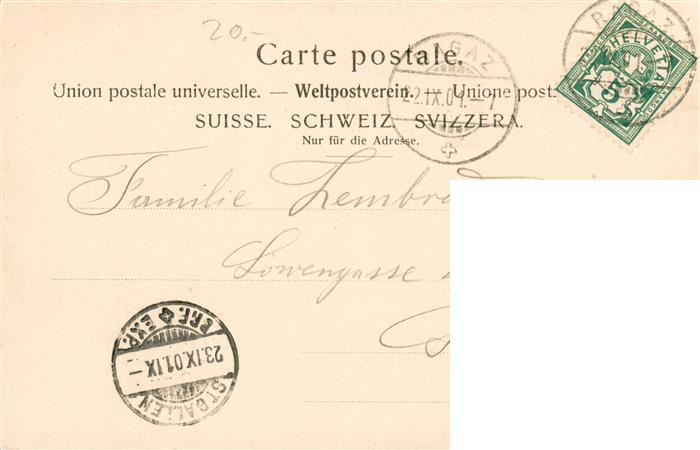 20.-
Carte postale.
Union postale universelle. — Weltpostverein. — Unione post
SUISSE. SCHWEIZ. SVIZZERA.
Nur für die Adresse.
RAGAZ
22.IX.01.—1
RAGAZ
HELVETIA
5
Familie Lembr
Löwengasse
BRF. EXP.
23.IX.01.IX—
ST. GALLEN